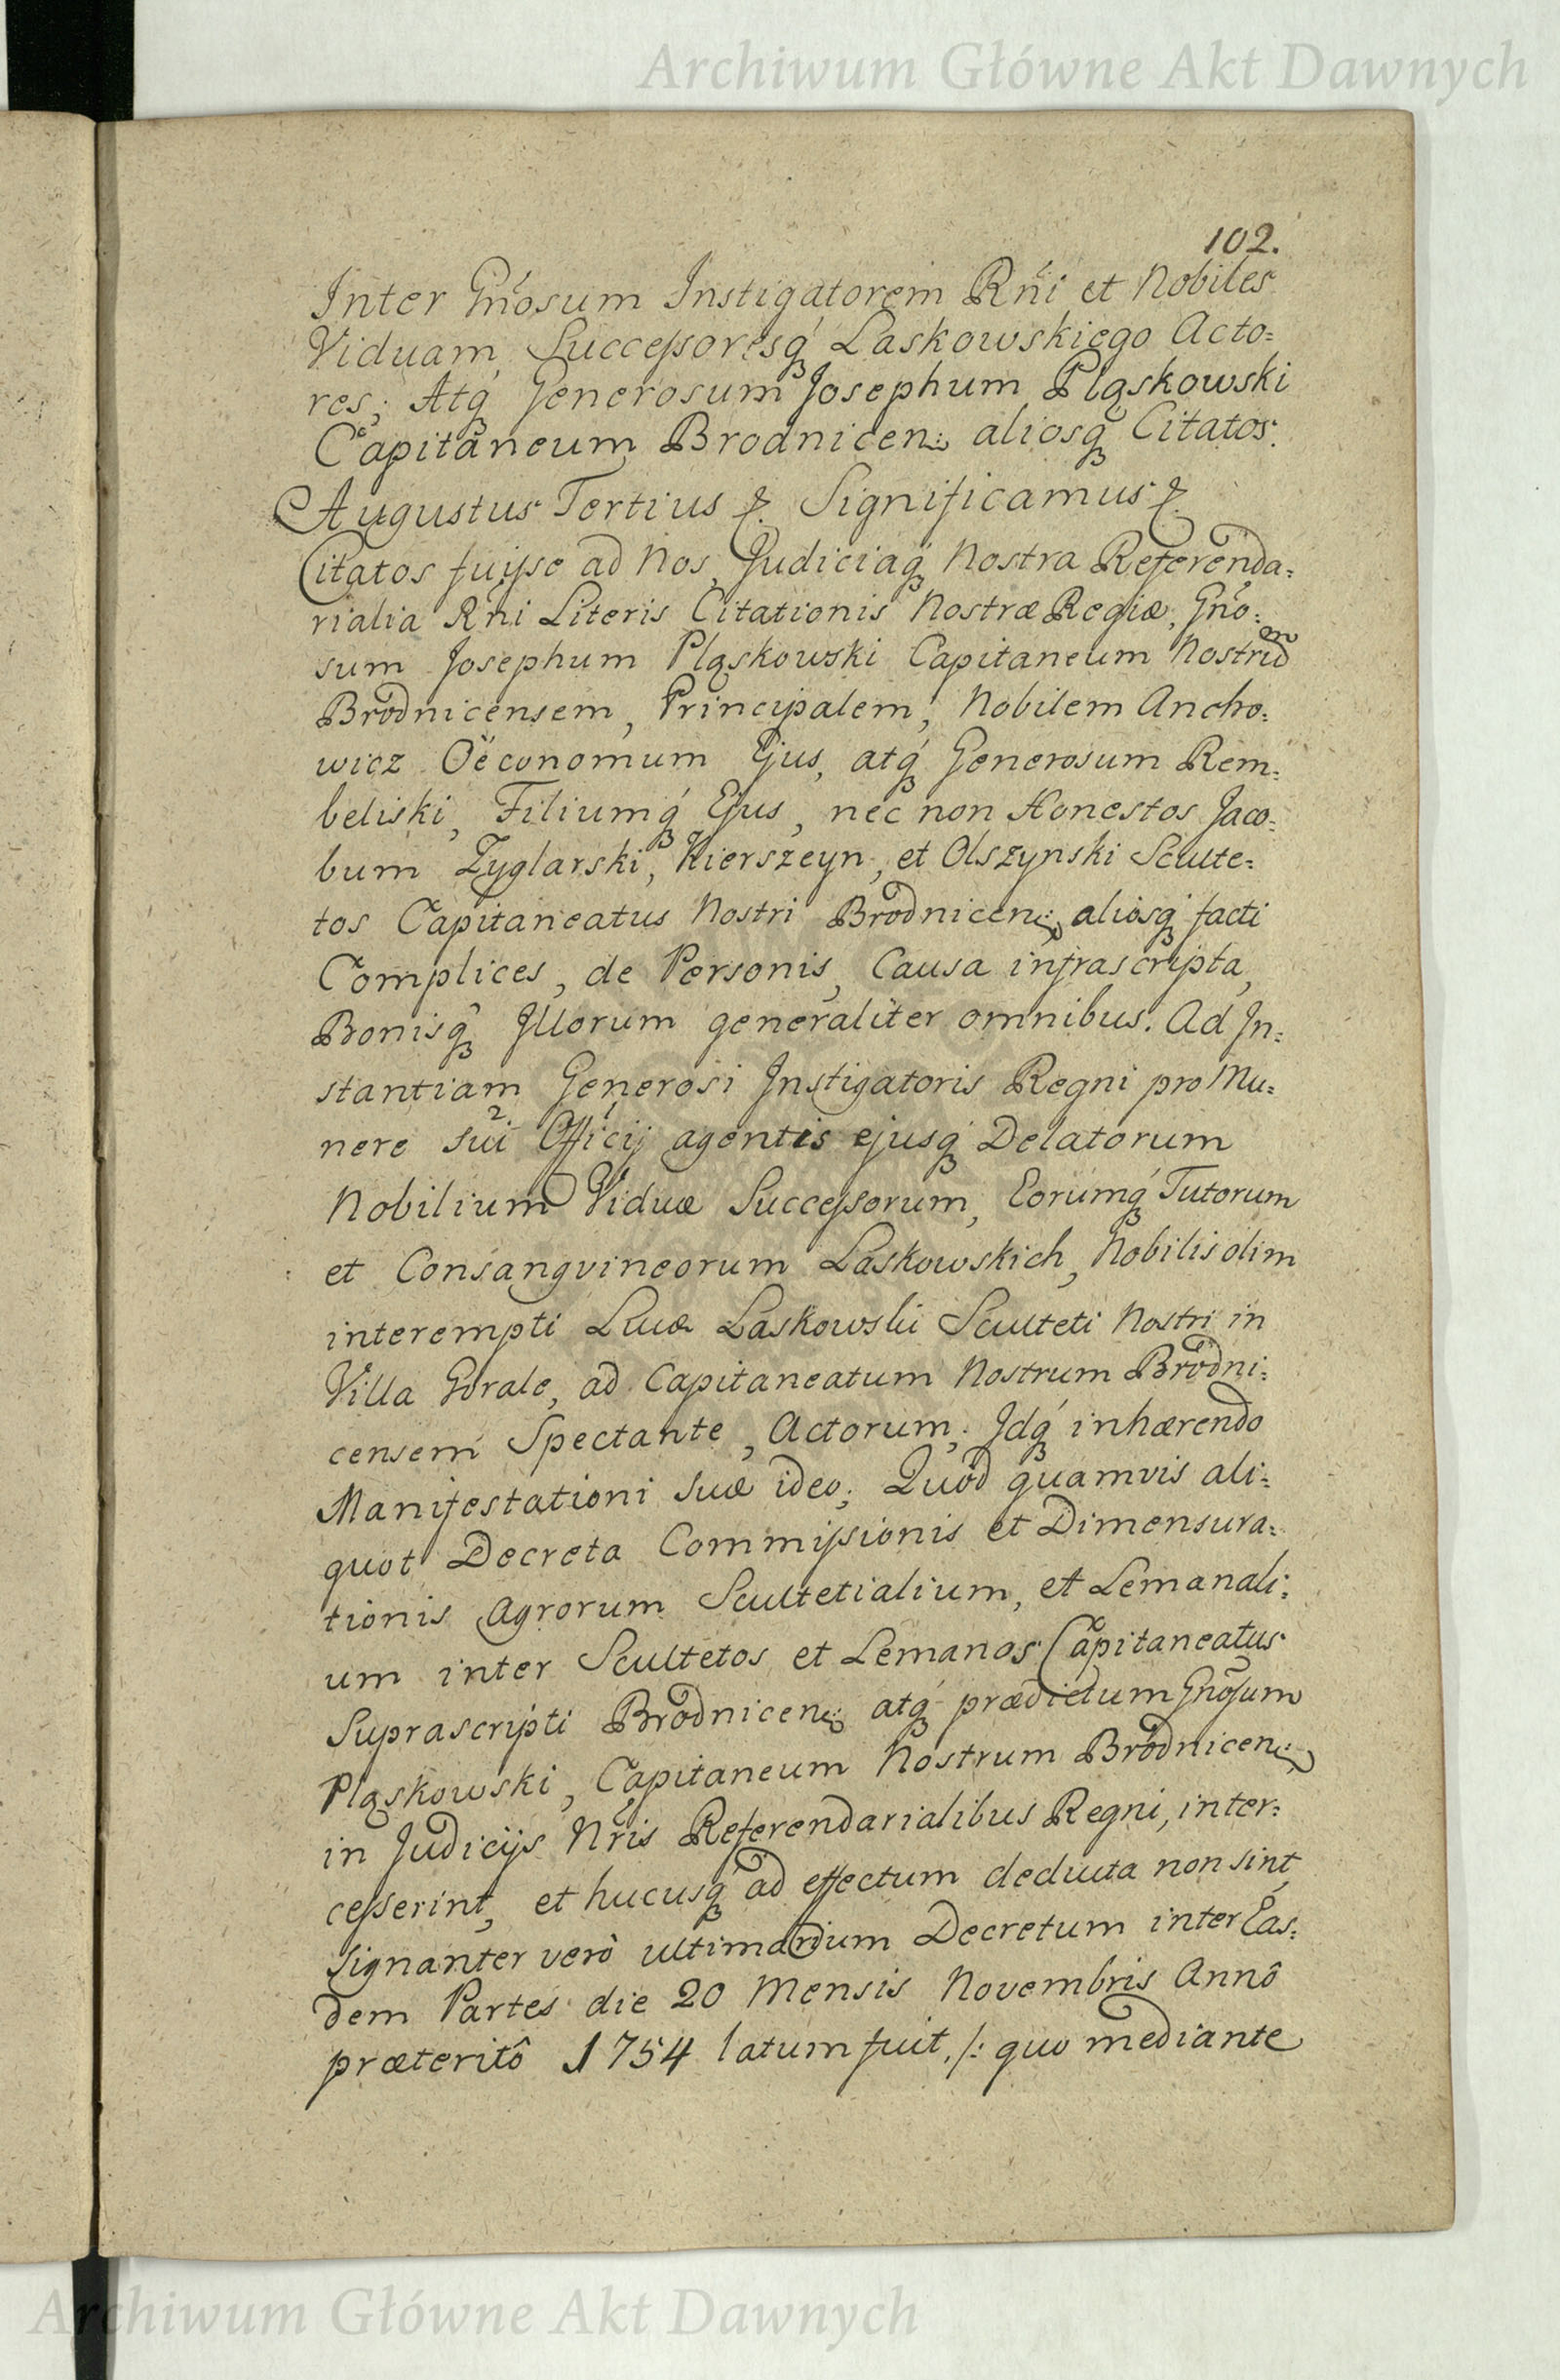 Archiwum Główne Akt Dawnych
102.
Inter Gńosum Instigatorem Rńi et Nobiles
Viduam, Successoresq́ Laskowskiego Acto=
res; Atq́ Generosum Josephum Pląskowski
Capitaneum Brodnicen: aliosq́ Citatos.
Augustus Tertius &. Significamus &.
Citatos fuisse ad Nos, Judiciaq́ Nostra Referenda=
rialia Rńi Literis Citationis Nostræ Regiæ, Gńo=
sum Josephum Pląskowski Capitaneum Nostrum
Brodnicensem, Principalem, Nobilem Ancho=
wicz Oëconomum Ejus, atq́ Generosum Rem=
beliski, Filiumq́ Ejus, nec non Honestos Jaco=
bum Zyglarski, Kierszeyn, et Olszynski Sculte=
tos Capitaneatus Nostri Brodnicen: aliosq́ facti
Complices, de Personis, Causa infrascripta,
Bonisq́ Illorum generaliter omnibus. Ad In=
stantiam Generosi Instigatoris Regni pro Mu=
nere sui Officij agentis ejusq́ Delatorum
Nobilium Viduæ Successorum, Eorumq́ Tutorum
et Consangvineorum Laskowskich, Nobilis olim
interempti Lucæ Laskowski Sculteti Nostri in
Villa Gorale, ad Capitaneatum Nostrum Brodni=
censem Spectante, Actorum; Idq́ inhærendo
Manifestationi suæ ideo; Quod quamvis ali=
quot Decreta Commissionis et Dimensura=
tionis Agrorum Scultetialium, et Lemanali=
um inter Scultetos et Lemanos Capitaneatus
Suprascripti Brodnicen: atq́ prædictum Gńosum
Pląskowski, Capitaneum Nostrum Brodnicen:
in Judicijs Nŕis Referendarialibus Regni, inter=
cesserint, et hucusq́ ad effectum deducta non sint,
signanter verò ultimarium Decretum inter Eas=
dem Partes die 20 Mensis Novembris Annô
præteritô 1754 latum fuit, /: quo mediante
Archiwum Główne Akt Dawnych